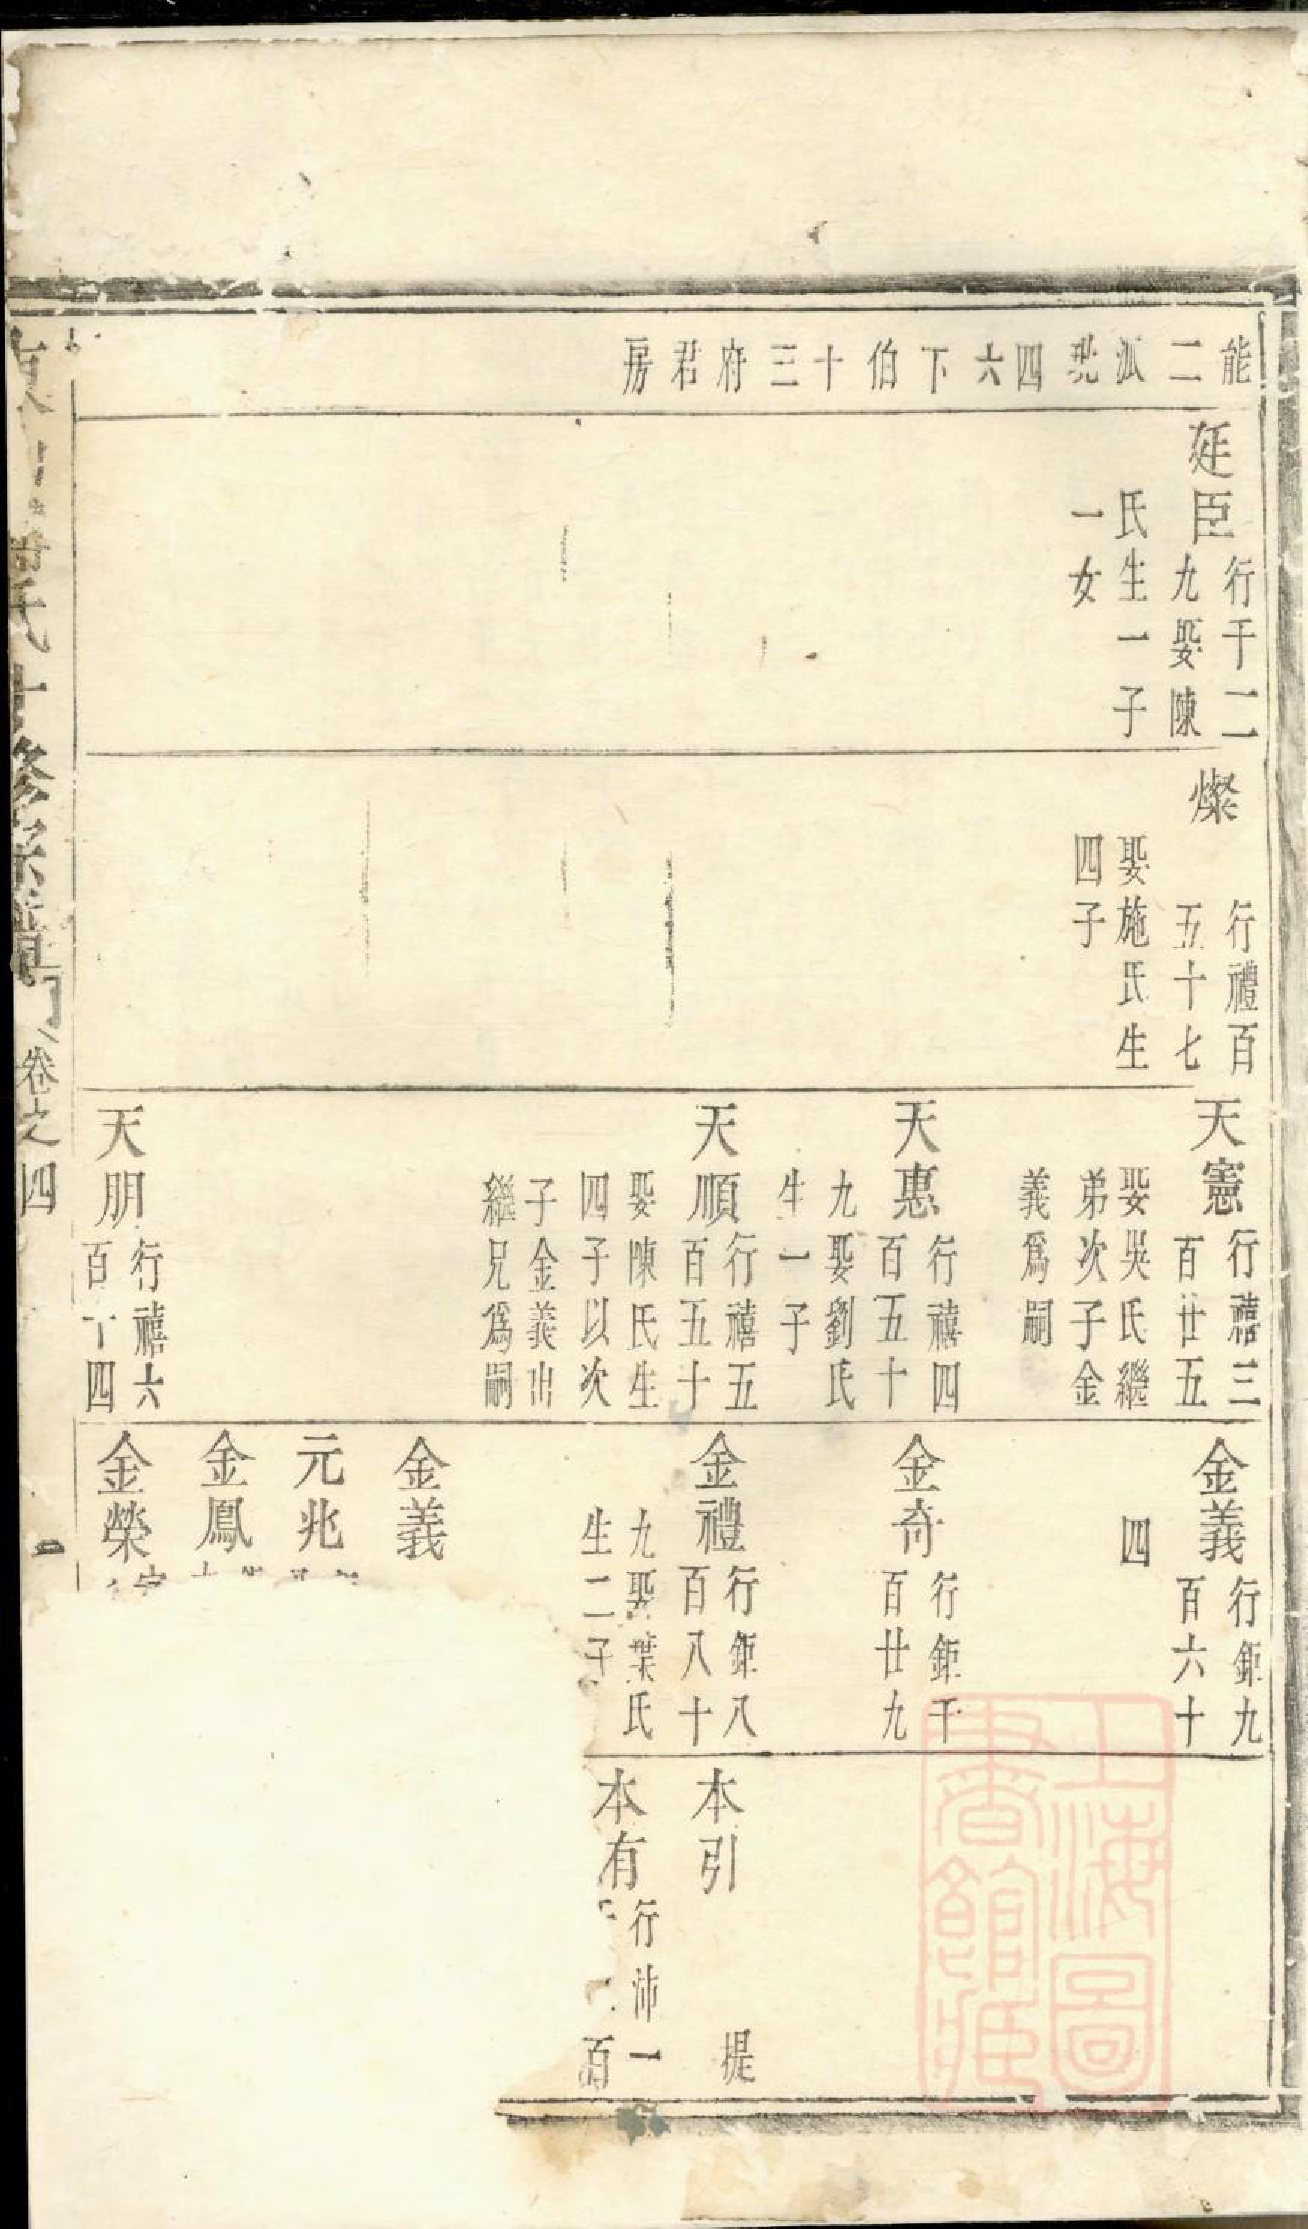 能二派珖四六下伯十三府君房
廷臣
行于二
九娶陳
氏生一子
一女
燦
行禮百
五十七
娶施氏生
四子
天憲
行禧三
百廿五
娶吳氏繼
弟次子金
義爲嗣
天惠
行禧四
百五十
九娶劉氏
生一子
天順
行禧五
百五十
娶陳氏生
四子以次
子金義出
繼兄爲嗣
天朋
行禧六
百十四
金義
行鉅九
百六十
四
金奇
行鉅千
百廿九
金禮
行鉅八
百八十
九娶葉氏
生二子
金義
元兆
金鳳
金榮
本引
提
本有
行沛一
百
氏
修宗譜
卷之四
上海圖書館藏